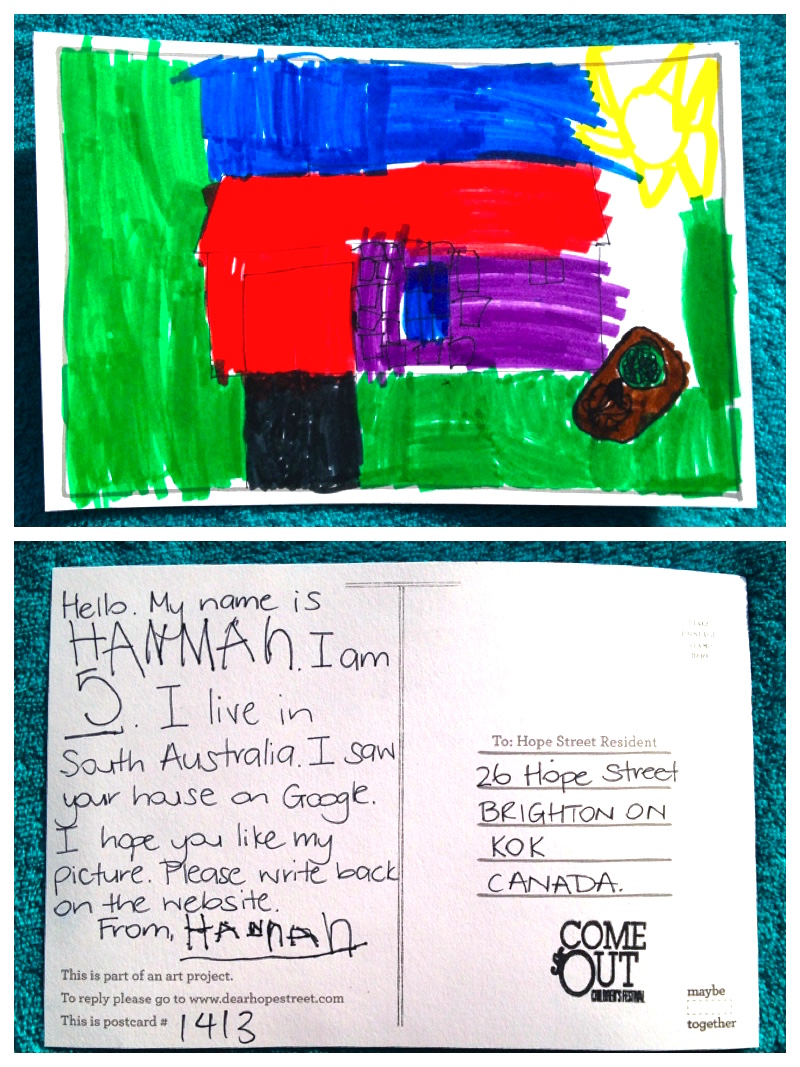 Hello. My name is
HANNAh. I am
5. I live in
South Australia. I saw
your house on Google.
I hope you like my
picture. Please write back
on the website.
From, HANNAh
This is part of an art project.
To reply please go to www.dearhopestreet.com
This is postcard # 1413
To: Hope Street Resident
26 Hope Street
BRIGHTON ON
KOK
CANADA.
COME
OUT
CHILDREN'S FESTIVAL
maybe
together